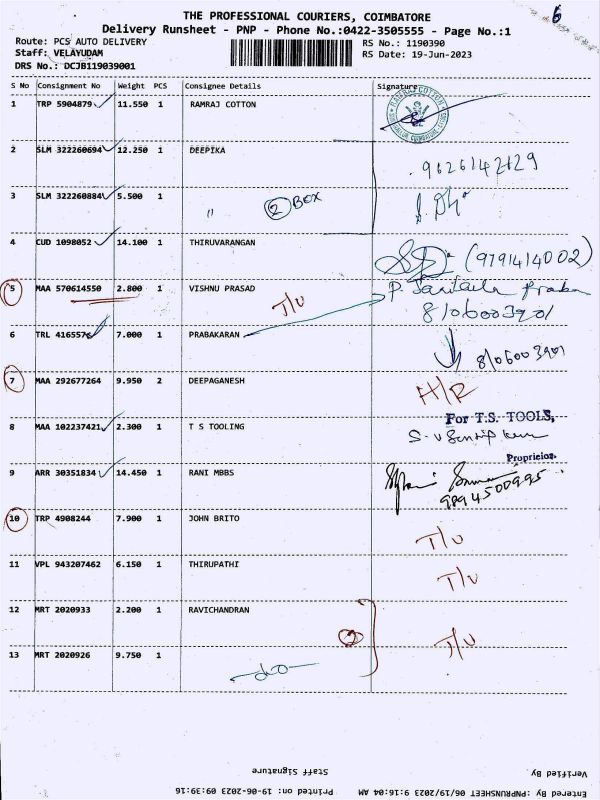 6
THE PROFESSIONAL COURIERS, COIMBATORE
Delivery Runsheet - PNP - Phone No.:0422-3505555 - Page No.:1
Route: PCS AUTO DELIVERY RS No.: 1190390
Staff: VELAYUDAM RS Date: 19-Jun-2023
DRS No.: DCJB119039001
S No Consignment No Weight PCS Consignee Details Signature
1 TRP 5904879 11.550 1 RAMRAJ COTTON
RAMRAJ COTTON
2 SLM 322260694 12.250 1 DEEPIKA 9626142129
3 SLM 322260884 5.500 1 " 2 BOX
4 CUD 1098052 14.100 1 THIRUVARANGAN (9791414002)
5 MAA 570614550 2.800 1 VISHNU PRASAD T/U
8106003901
6 TRL 416557 7.000 1 PRABAKARAN 8106003901
7 MAA 292677264 9.950 2 DEEPAGANESH H/R
8 MAA 102237421 2.300 1 T S TOOLING For T.S. TOOLS,
Proprietor.
9 ARR 30351834 14.450 1 RANI MBBS 9894500995
10 TRP 4908244 7.900 1 JOHN BRITO T/U
11 VPL 943207462 6.150 1 THIRUPATHI T/U
12 MRT 2020933 2.200 1 RAVICHANDRAN
2 T/U
13 MRT 2020926 9.750 1 -do-
Verified By Staff Signature
Entered By :PNPRUNSHEET 06/19/2023 9:16:04 AM Printed on: 19-06-2023 09:39:16